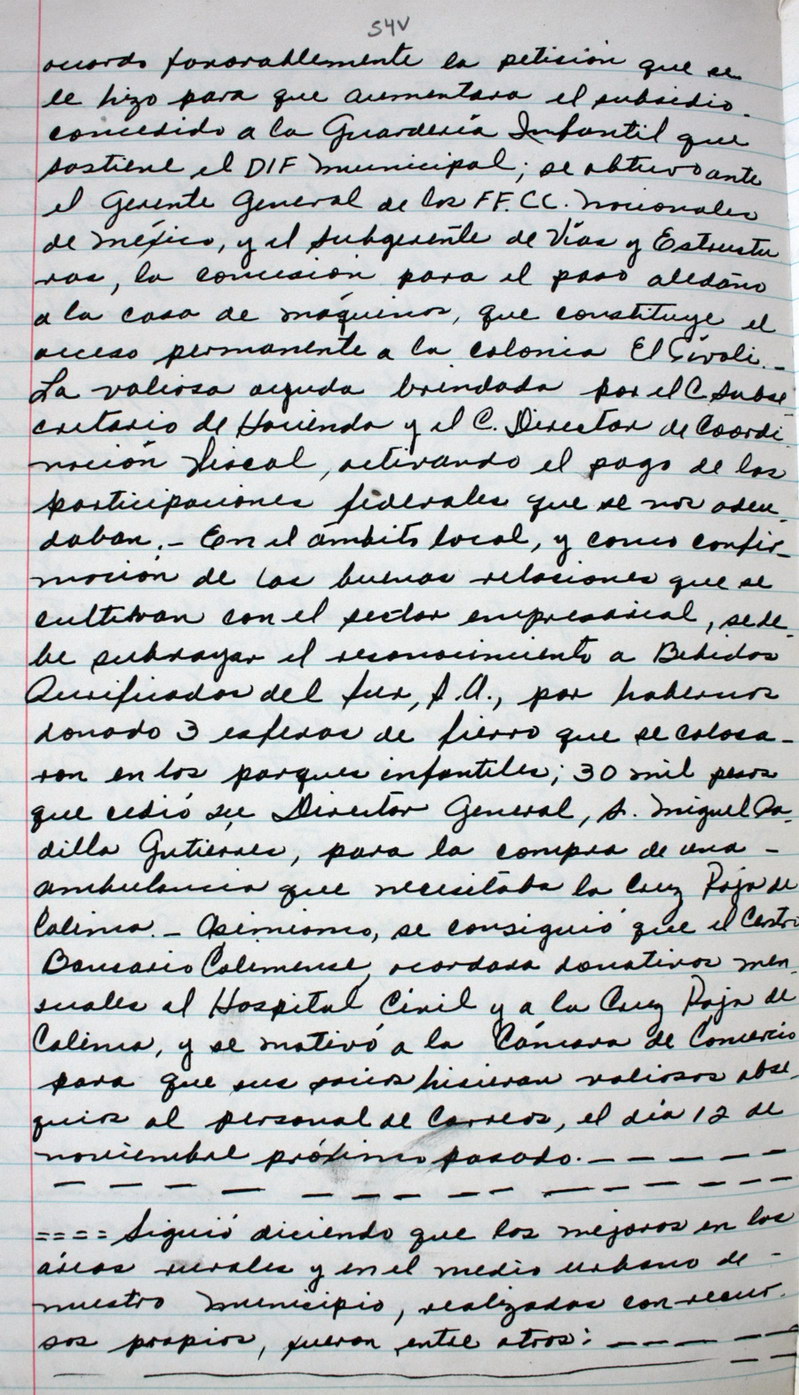 54V
acordó favorablemente la petición que se
le hizo para que aumentara el subsidio
concedido a la Guardería Infantil que
sostiene el DIF Municipal; se obtuvo ante
el Gerente General de los FF.CC. Nacionales
de México, y el Subgerente de Vías y Estructu
ras, la concesión para el paso aledaño
a la casa de máquinas, que constituye el
acceso permanente a la colonia El Tívoli.-
La valiosa ayuda brindada por el C. Subse
cretario de Hacienda y el C. Director de Coordi
nación Fiscal, activando el pago de las
participaciones federales que se nos adeu
daban.- En el ámbito local, y como confir-
mación de las buenas relaciones que se
cultivan con el sector empresarial, se de
be subrayar el reconocimiento a Bebidas
Purificadas del Sur, S.A., por habernos
donado 3 esferas de fierro que se coloca-
ron en los parques infantiles; 30 mil pesos
que cedió su Director General, Sr. Miguel Pa-
dilla Gutiérrez, para la compra de una -
ambulancia que necesitaba la Cruz Roja de
Colima.- Asimismo, se consiguió que el Centro
Bancario Colimense, acordara donativos men
suales al Hospital Civil y a la Cruz Roja de
Colima, y se motivó a la Cámara de Comercio
para que sus socios hicieran valiosos obse-
quios al personal de Correos, el día 12 de
noviembre próximo pasado.- - - - - -
- - - - - - - - - - - - - -
==== Siguió diciendo que las mejoras en las
áreas rurales y en el medio urbano de -
nuestro municipio, realizadas con recur-
sos propios, fueron entre otros: - - - - -